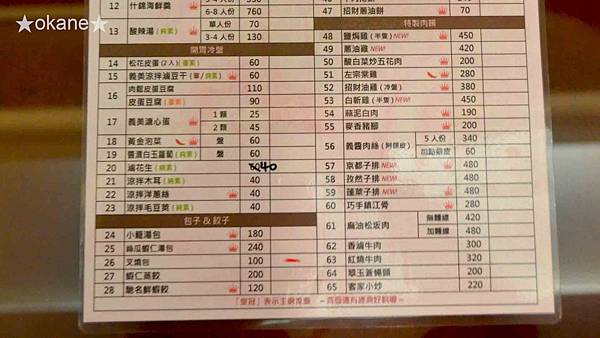 ★okane★
12 什錦海鮮羹 6-8 人份 760
13 酸辣湯 (純素) 單人份 50
3-4 人份 130
開胃冷盤
14 松花皮蛋 (2人) (蛋素) 60
15 義美涼拌滷豆干 (單/純素) 60
16 肉鬆皮蛋豆腐 110
皮蛋豆腐 (蛋素) 90
17 義美溏心蛋 1 顆 25
2 顆 45
18 黃金泡菜 盤 60
19 醬漬白玉蘿蔔 (純素) 盤 60
20 滷花生 (純素) 40
21 涼拌木耳 (純素) 40
22 涼拌洋蔥絲 40
23 涼拌毛豆莢 (純素) 40
包子 & 餃子
24 小籠湯包 180
25 絲瓜蝦仁湯包 240
26 叉燒包 100
27 蝦仁蒸餃 200
28 馳名鮮蝦餃 120
47 招財蔥油餅 70
特製肉類
48 鹽焗雞 (半隻) NEW! 450
49 蔥油雞 NEW! 420
50 酸白菜炒五花肉 200
51 左宗棠雞 280
52 招財油雞 (冷盤) 360
53 白斬雞 (半隻) NEW! 420
54 蒜泥白肉 190
55 麥香豬腳 200
56 義醬肉絲 (附餅皮) 5 人份 340
加點餅皮 60
57 京都子排 NEW! 480
58 孜然子排 NEW! 480
59 蓬萊子排 NEW! 480
60 巧手鎮江骨 280
61 麻油松坂肉 無麵線 420
加麵線 480
62 香滷牛肉 300
63 紅燒牛肉 320
64 翠玉蒼蠅頭 200
65 客家小炒 220
「皇冠」表示主廚推薦